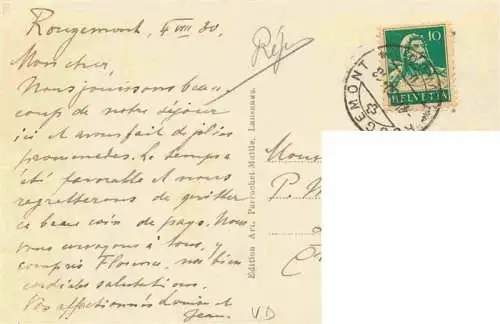 Rougemont, 4 VIII 30.
Rép
Mon cher,
Nous jouissons beau-
coup de notre séjour
ici et avons fait de jolies
promenades. Le temps a
été favorable et nous
regretterons de quitter
ce beau coin de pays. Nous
vous envoyons à tous, y
compris Florence, nos bien
cordiales salutations.
Vos affectionnés Louise et
Jean
VD
Edition Art. Perrochet-Matile, Lausanne.
10
HELVETIA
ROUGEMONT
P.